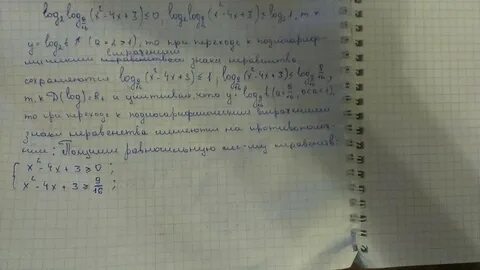 log₂log₉⁄₁₆(x²-4x+3)≤0, log₂log₉⁄₁₆(x²-4x+3)≤log₂1, т.к
y=log₂t ↗ (a=2>1), то при переходе к подлогариф-
мическим выражениям знака неравенства
сохраняются log₉⁄₁₆(x²-4x+3)≤1; log₉⁄₁₆(x²-4x+3)≤log₉⁄₁₆ 9/16,
т.к D(log)=R₊ и учитывая, что y=log₉⁄₁₆t (a=9/16, 0<a<1),
то при переходе к подлогарифмическим выражениям
знаки неравенства на противополож-
ные: Получим равносильную неравенств:
x²-4x+3≥0;
x²-4x+3≥9/16;